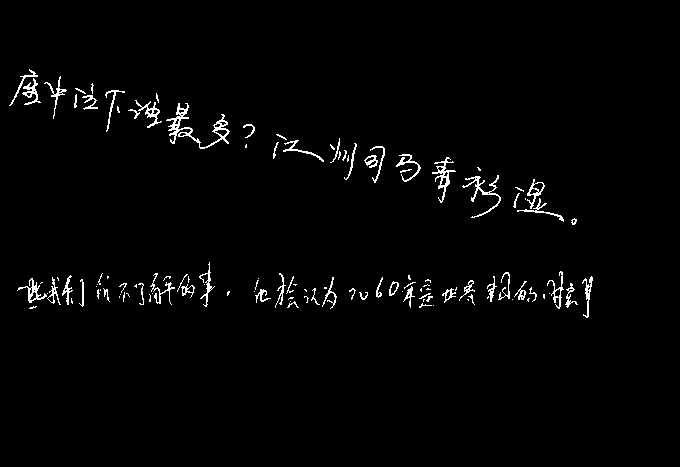 座中泣下谁最多?江州司马青衫湿。
些我们所不了解的事,他能认为2060年是世界末日的